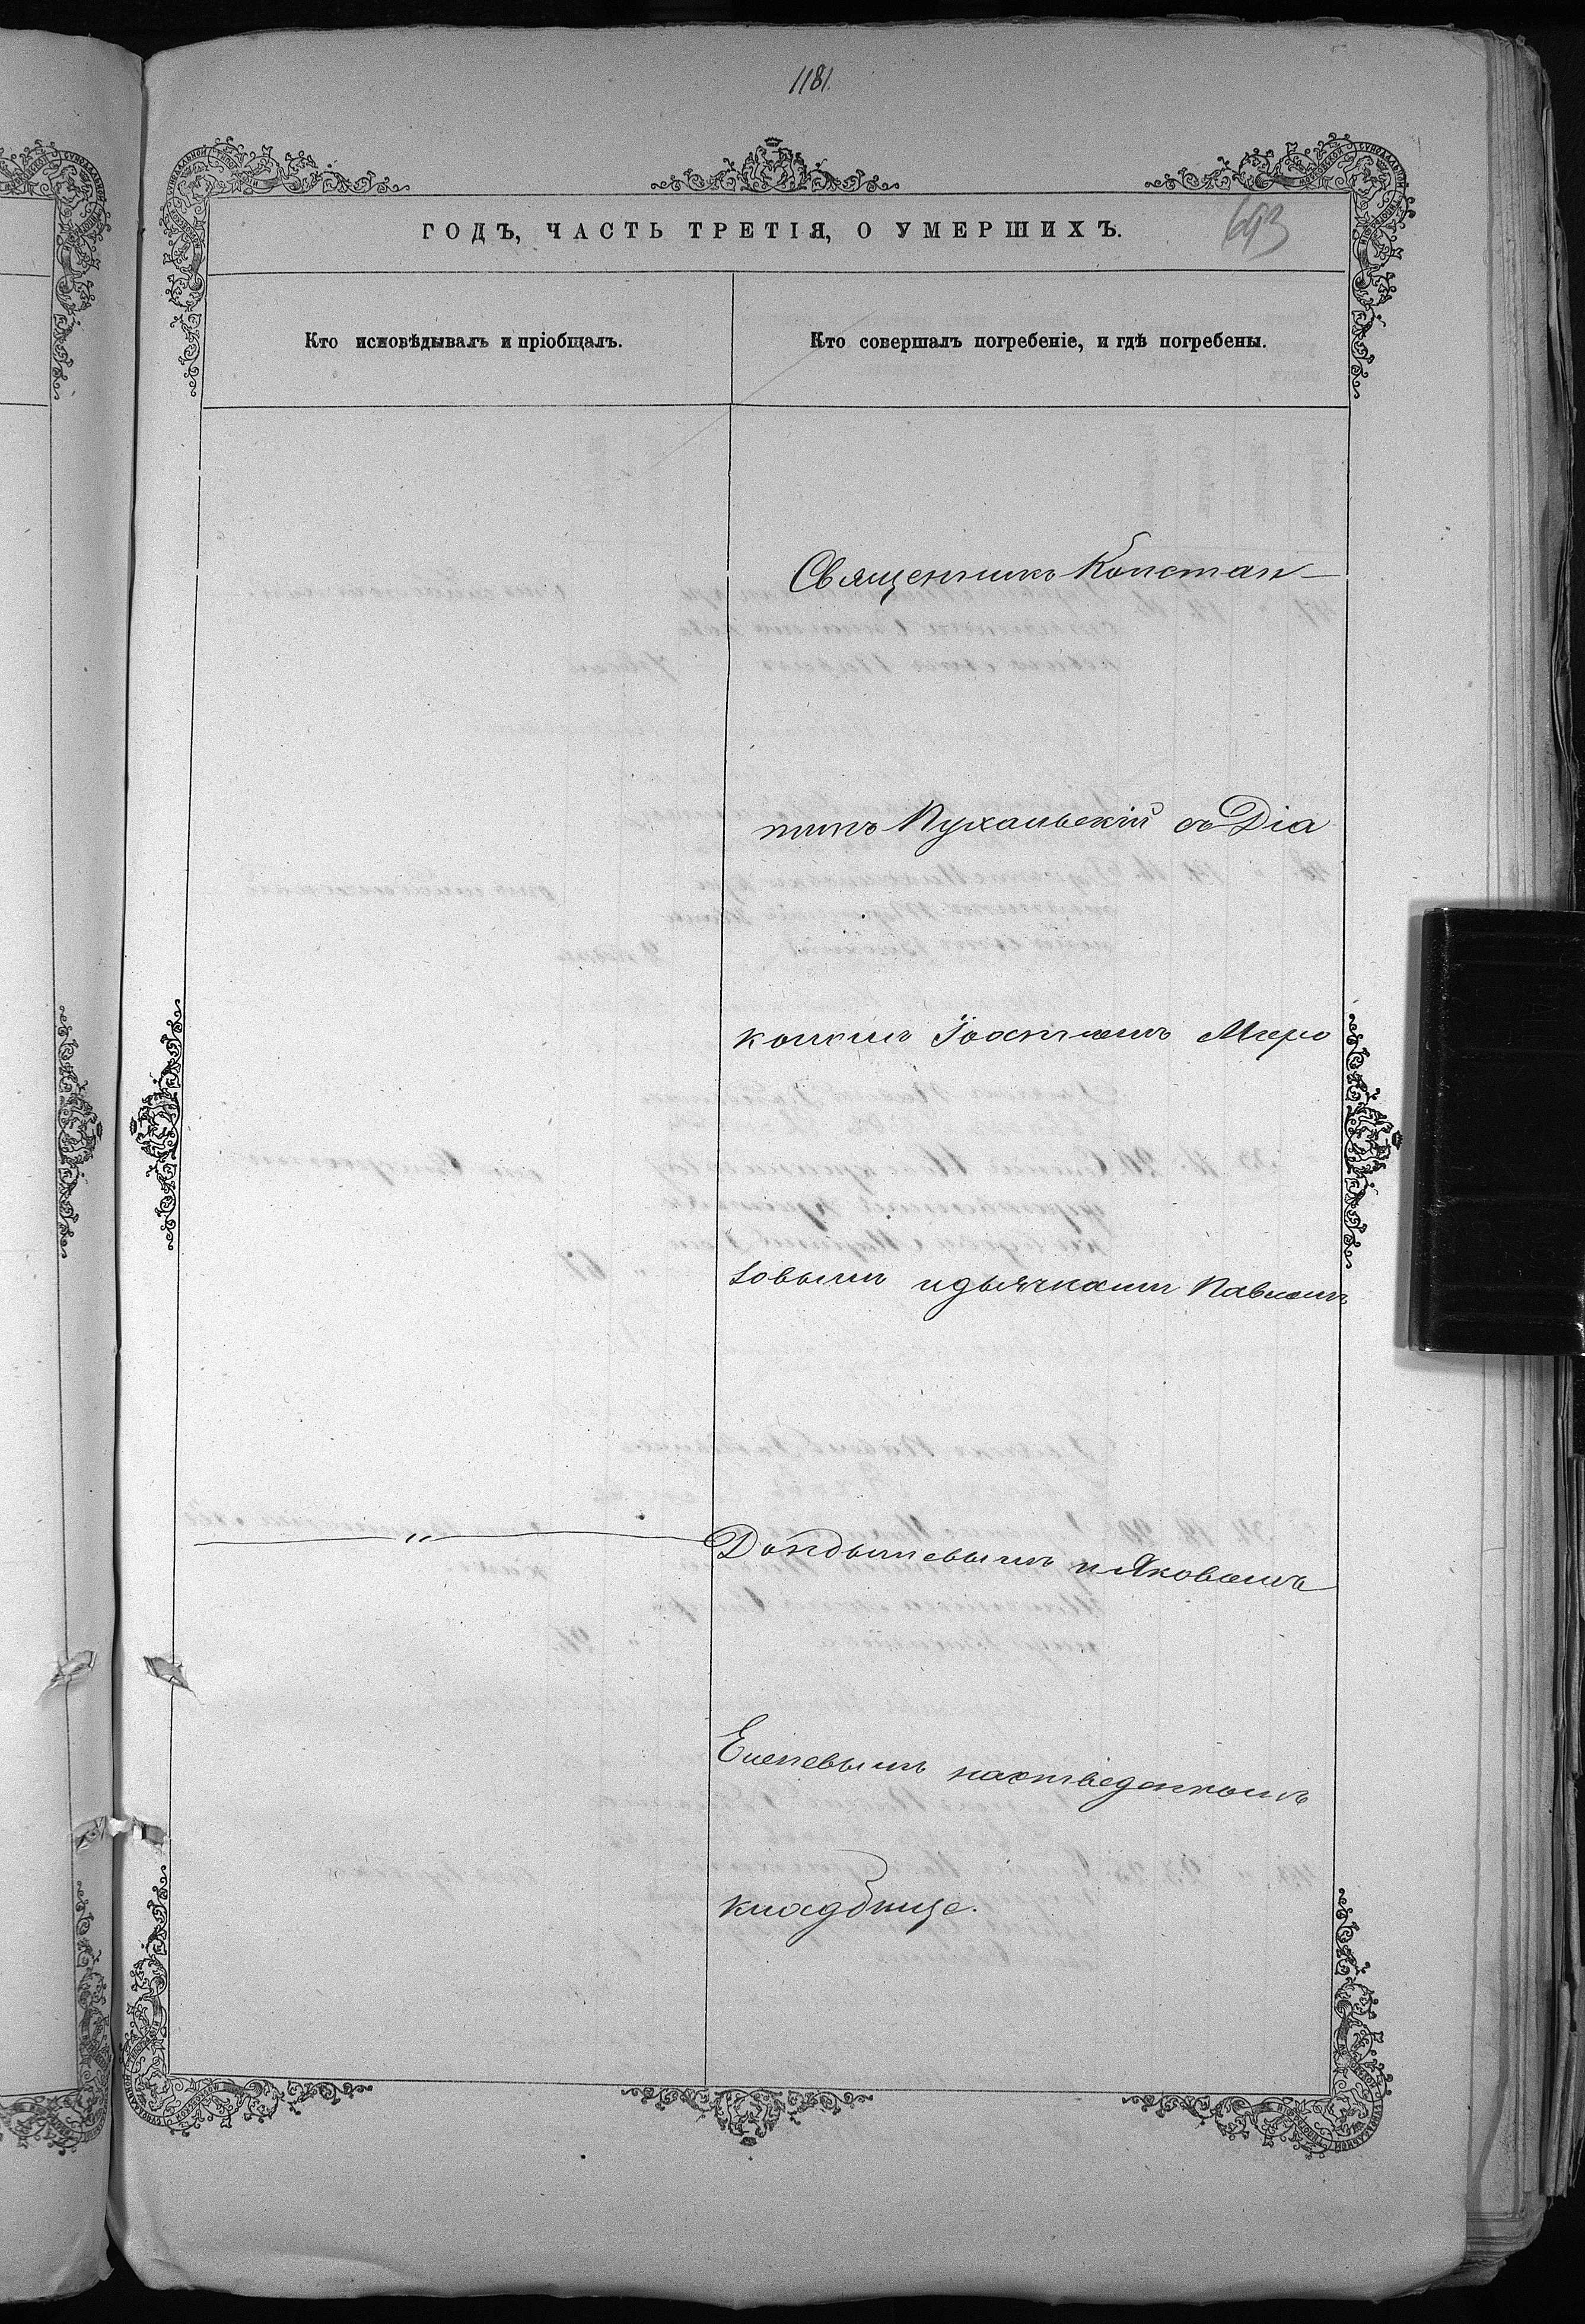 1181.
ГОДЪ, ЧАСТЬ ТРЕТІЯ, О УМЕРШИХЪ.
693
Кто исповѣдывалъ и пріобщалъ.
Кто совершалъ погребеніе, и гдѣ погребены.
Священникъ Констан-
тинъ Пухальскій съ Діа
кономъ Іоанномъ Миро
новымъ и дьячками Павломъ
и Яковомъ
"
на отведенномъ
кладбище.